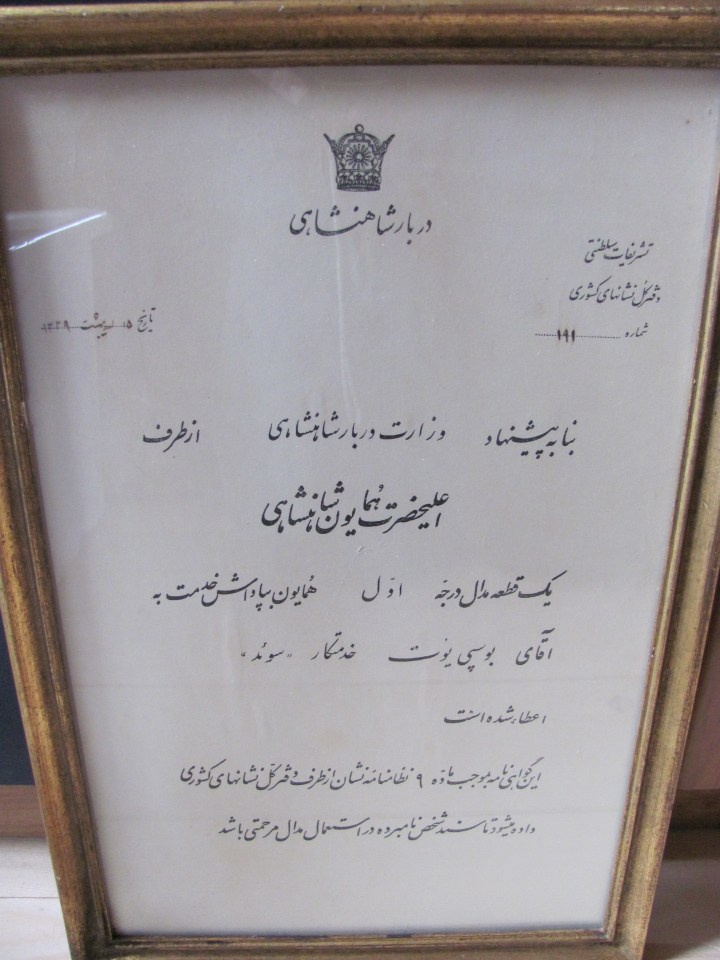 دربار شاهنشاهی
تشریفات سلطنتی
دفتر کل نشانهای کشوری
شماره ۱۹۱
تاریخ ۱۵ ۱۳۳۹
بنا به پیشنهاد وزارت دربار شاهنشاهی از طرف
اعلیحضرت همایون شاهنشاهی
یک قطعه مدال درجه اول همایون بپاداش خدمت به
آقای بوسپی یوت خدمتکار «سوئد»
اعطاء شده است
این گواهی نامه بموجب ماده ۹ نظامنامه نشان از طرف دفتر کل نشانهای کشوری
داده میشود تا سند شخص نامبرده در استعمال مدال مرحمتی باشد